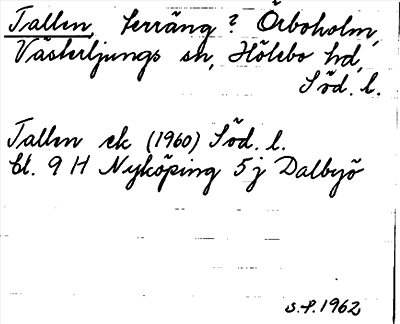 Tallen, terräng? Örboholm,
Västerljungs sn, Hölebo hd,
Söd. l.
Tallen ek (1960) Söd. l.
bl. 9 H Nyköping 5 j Dalbyö
s.f. 1962